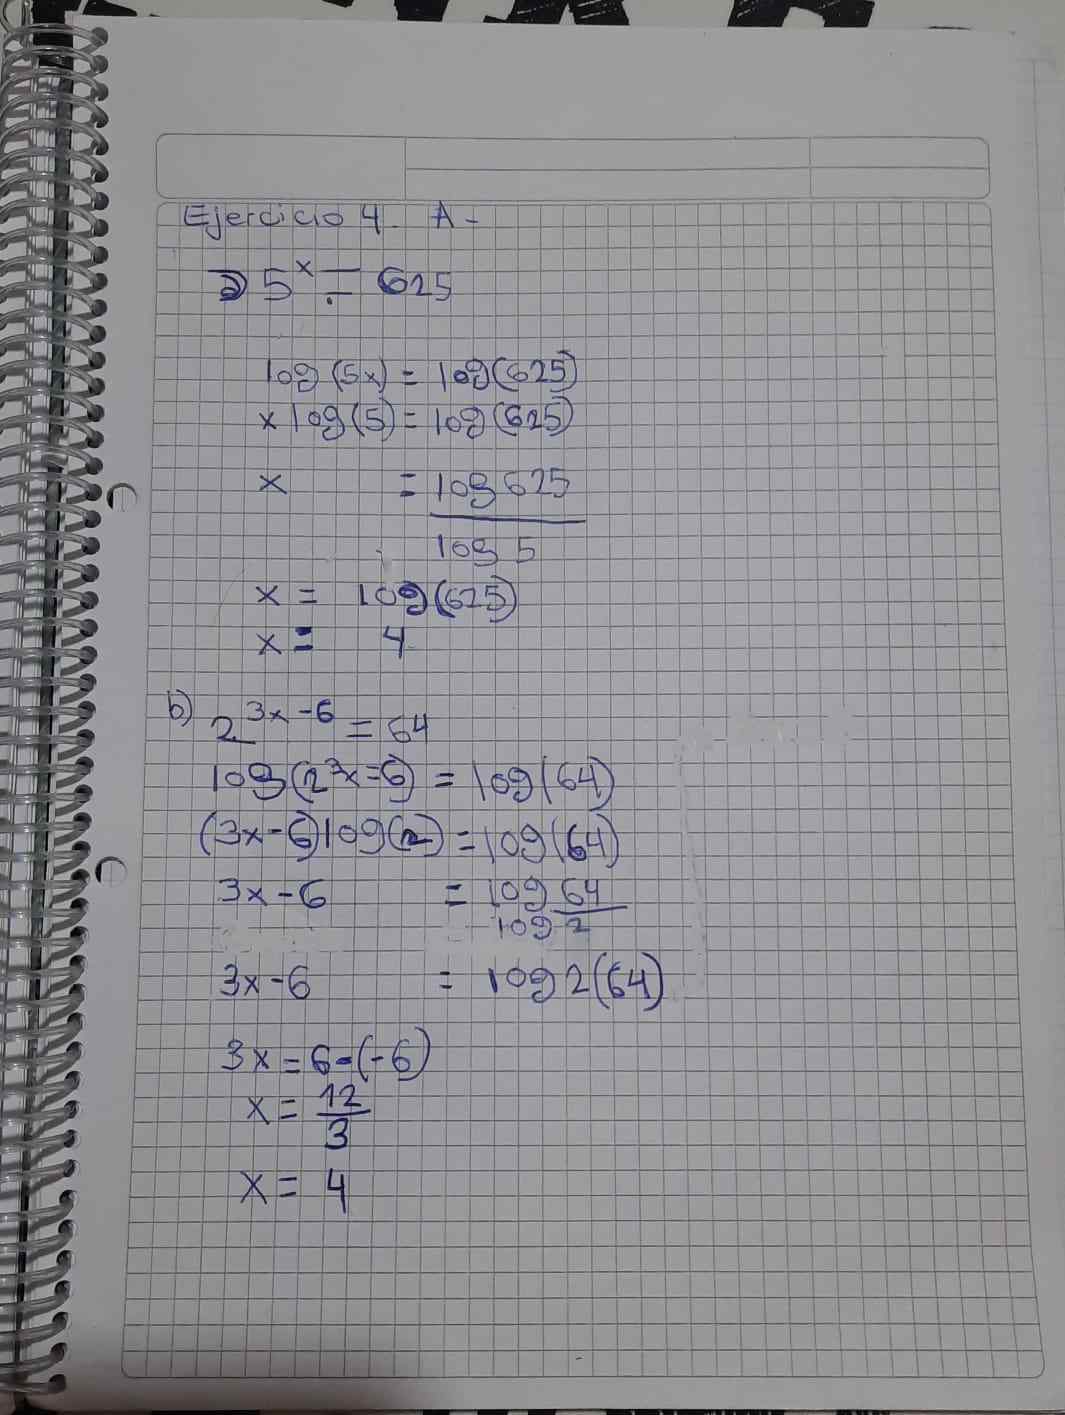 Ejercicio 4. A-
a) 5^x = 625
log (5x) = log(625)
x log(5) = log(625)
x = log 625
log 5
x = log(625)
x = 4
b) 2^3x-6 = 64
log(2^3x=6) = log(64)
(3x-6)log(2) = log(64)
3x-6 = log 64
log 2
3x-6 = log 2(64)
3x = 6-(-6)
x = 12
3
x = 4